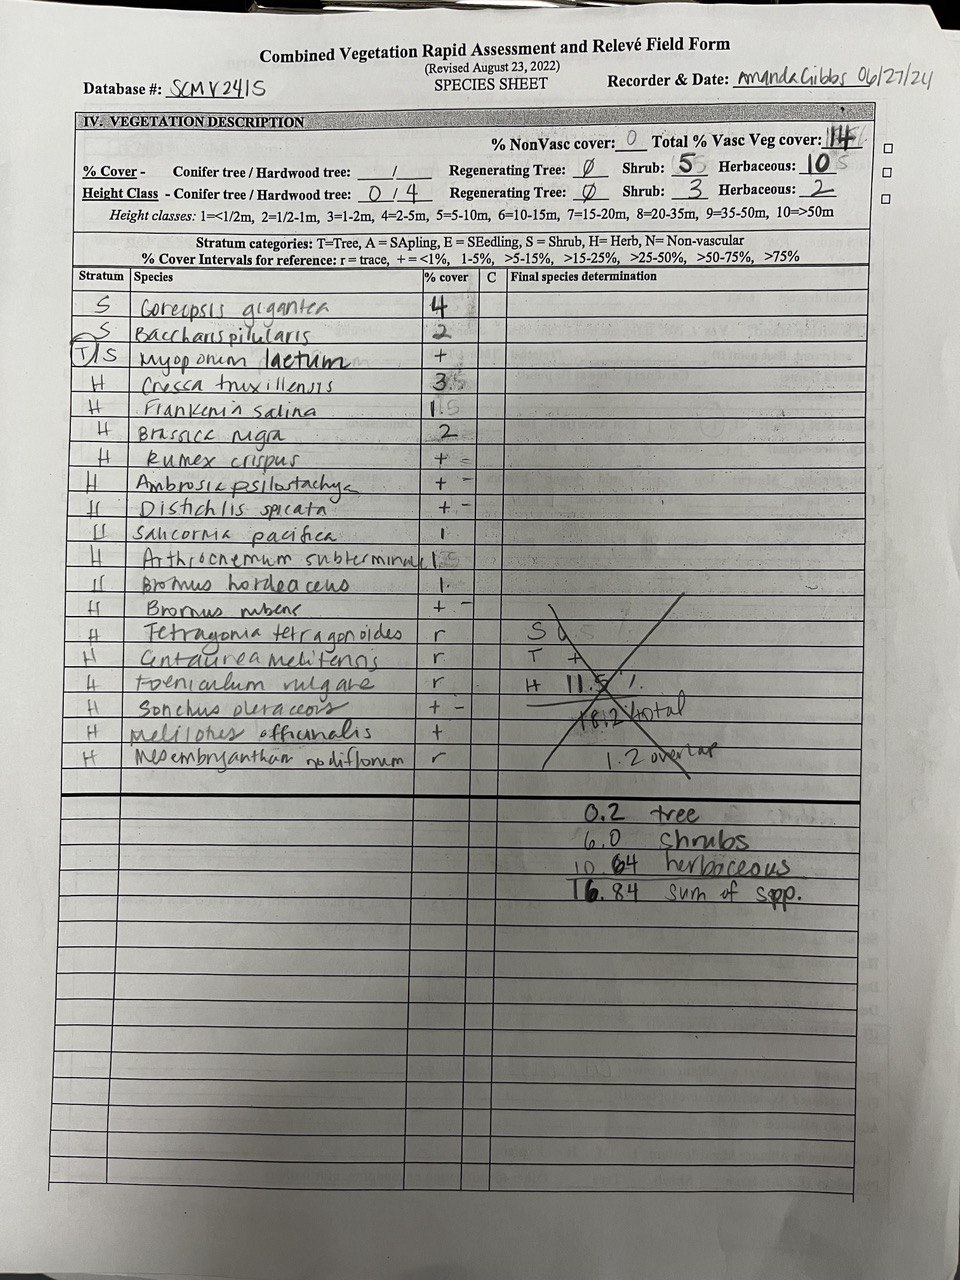 Combined Vegetation Rapid Assessment and Relevé Field Form
(Revised August 23, 2022)
Database #: SCMV2415 SPECIES SHEET Recorder & Date: Amanda Gibbs 06/27/24
IV. VEGETATION DESCRIPTION
% NonVasc cover: 0 Total % Vasc Veg cover: 14
% Cover - Conifer tree / Hardwood tree: / Regenerating Tree: Ø Shrub: 5 Herbaceous: 10
Height Class - Conifer tree / Hardwood tree: 0 / 4 Regenerating Tree: Ø Shrub: 3 Herbaceous: 2
Height classes: 1=<1/2m, 2=1/2-1m, 3=1-2m, 4=2-5m, 5=5-10m, 6=10-15m, 7=15-20m, 8=20-35m, 9=35-50m, 10=>50m
Stratum categories: T=Tree, A = SApling, E = SEedling, S = Shrub, H= Herb, N= Non-vascular
% Cover Intervals for reference: r = trace, + = <1%, 1-5%, >5-15%, >15-25%, >25-50%, >50-75%, >75%
Stratum Species % cover C Final species determination
S Coreopsis gigantea 4
S Baccharis pilularis 2
T/S Myoporum laetum +
H Cressa truxillensis 3
H Frankenia salina 1
H Brassica nigra 2
H Rumex crispus +
H Ambrosia psilostachya + -
H Distichlis spicata + -
H Salicornia pacifica 1
H Arthrocnemum subterminale 1
H Bromus hordeaceus 1
H Bromus rubens + -
H Tetragonia tetragonoides r S
H Centaurea melitensis r T +
H Foeniculum vulgare r H 11.5 %
H Sonchus oleraceois + - 18.2 total
H Melilotus officinalis +
H Mesembryanthan nodiflorum r 1.2 overlap
0.2 tree
6.0 shrubs
10.64 herbaceous
16.84 sum of spp.